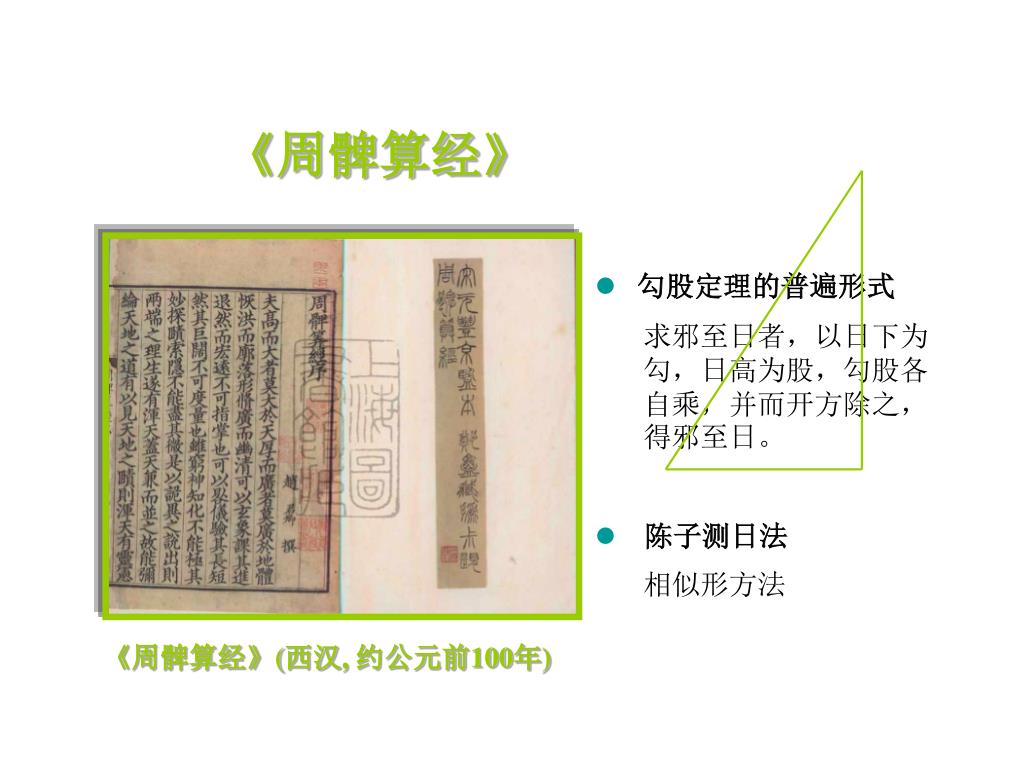 《周髀算经》
周髀算經序
趙君卿 撰
夫高而大者莫大於天厚而廣者莫廣於地體
恢洪而廓落形脩廣而幽清可以玄象課其進
退然而宏遠不可指掌也可以晷儀驗其長短
然其巨闊不可度量也雖窮神知化不能極其
妙探賾索隱不能盡其微是以詭異之說出則
兩端之理生遂有渾天蓋天兼而並之故能彌
綸天地之道有以見天地之賾則渾天有靈憲
上海圖
宋元豐京監本
周髀算經
● 勾股定理的普遍形式
求邪至日者，以日下为
勾，日高为股，勾股各
自乘，并而开方除之，
得邪至日。
● 陈子测日法
相似形方法
《周髀算经》(西汉, 约公元前100年)